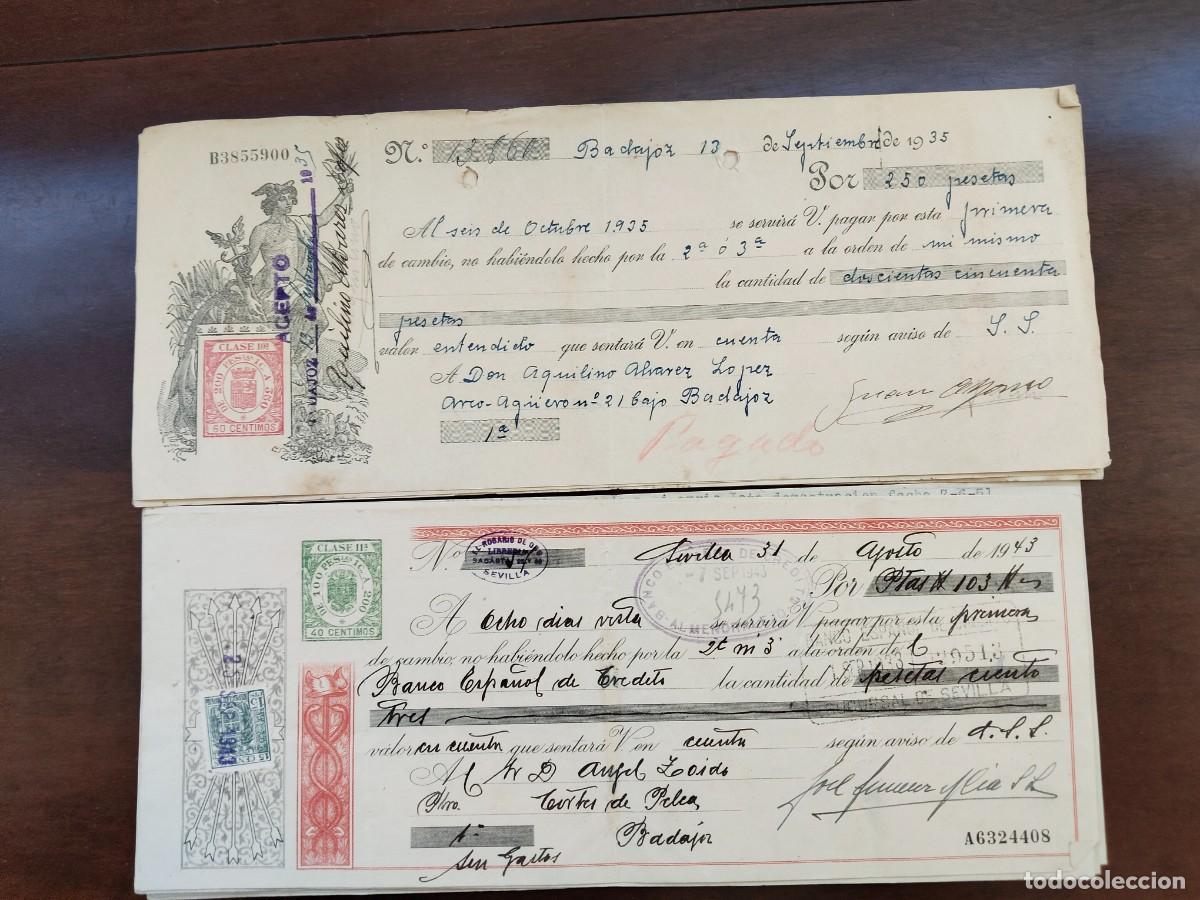 B3855900
N.º 13.861 Badajoz 13 de Septiembre de 1935
Por 250 pesetas
Al seis de Octubre 1935 se servirá V. pagar por esta primera
de cambio, no habiéndolo hecho por la 2ª ó 3ª a la orden de mi mismo
la cantidad de doscientas cincuenta
pesetas
valor entendido que sentará V. en cuenta según aviso de S. S.
A Don Aquilino Alvarez Lopez
Arco-Agüero nº 21 bajo Badajoz
1ª
Pagado
ACEPTO
1935
Aquilino Alvarez
CLASE 11ª
DE 200 PESETAS A 350
60 CENTIMOS
fecha 7-6-51
N.º Sevilla 31 de Agosto de 1943
LIBRERIA
SEVILLA
BANCO
7 SEP 1943
5473
ALMENDRALEJO
Por Ptas # 103 #
A Ocho dias vista se servirá V. pagar por esta primera
de cambio, no habiéndolo hecho por la 2ª ni 3ª a la orden de
Banco Español de Credito la cantidad de pesetas ciento
tres
valor en cuenta que sentará V. en cuenta según aviso de
SUCURSAL DE SEVILLA
Al Sr D Angel Zoido
Pbro. Cortes de Pelea
1ª Badajoz
Sin Gastos
A6324408
CLASE 11ª
DE 100 PESETAS A 200
40 CENTIMOS
todocoleccion